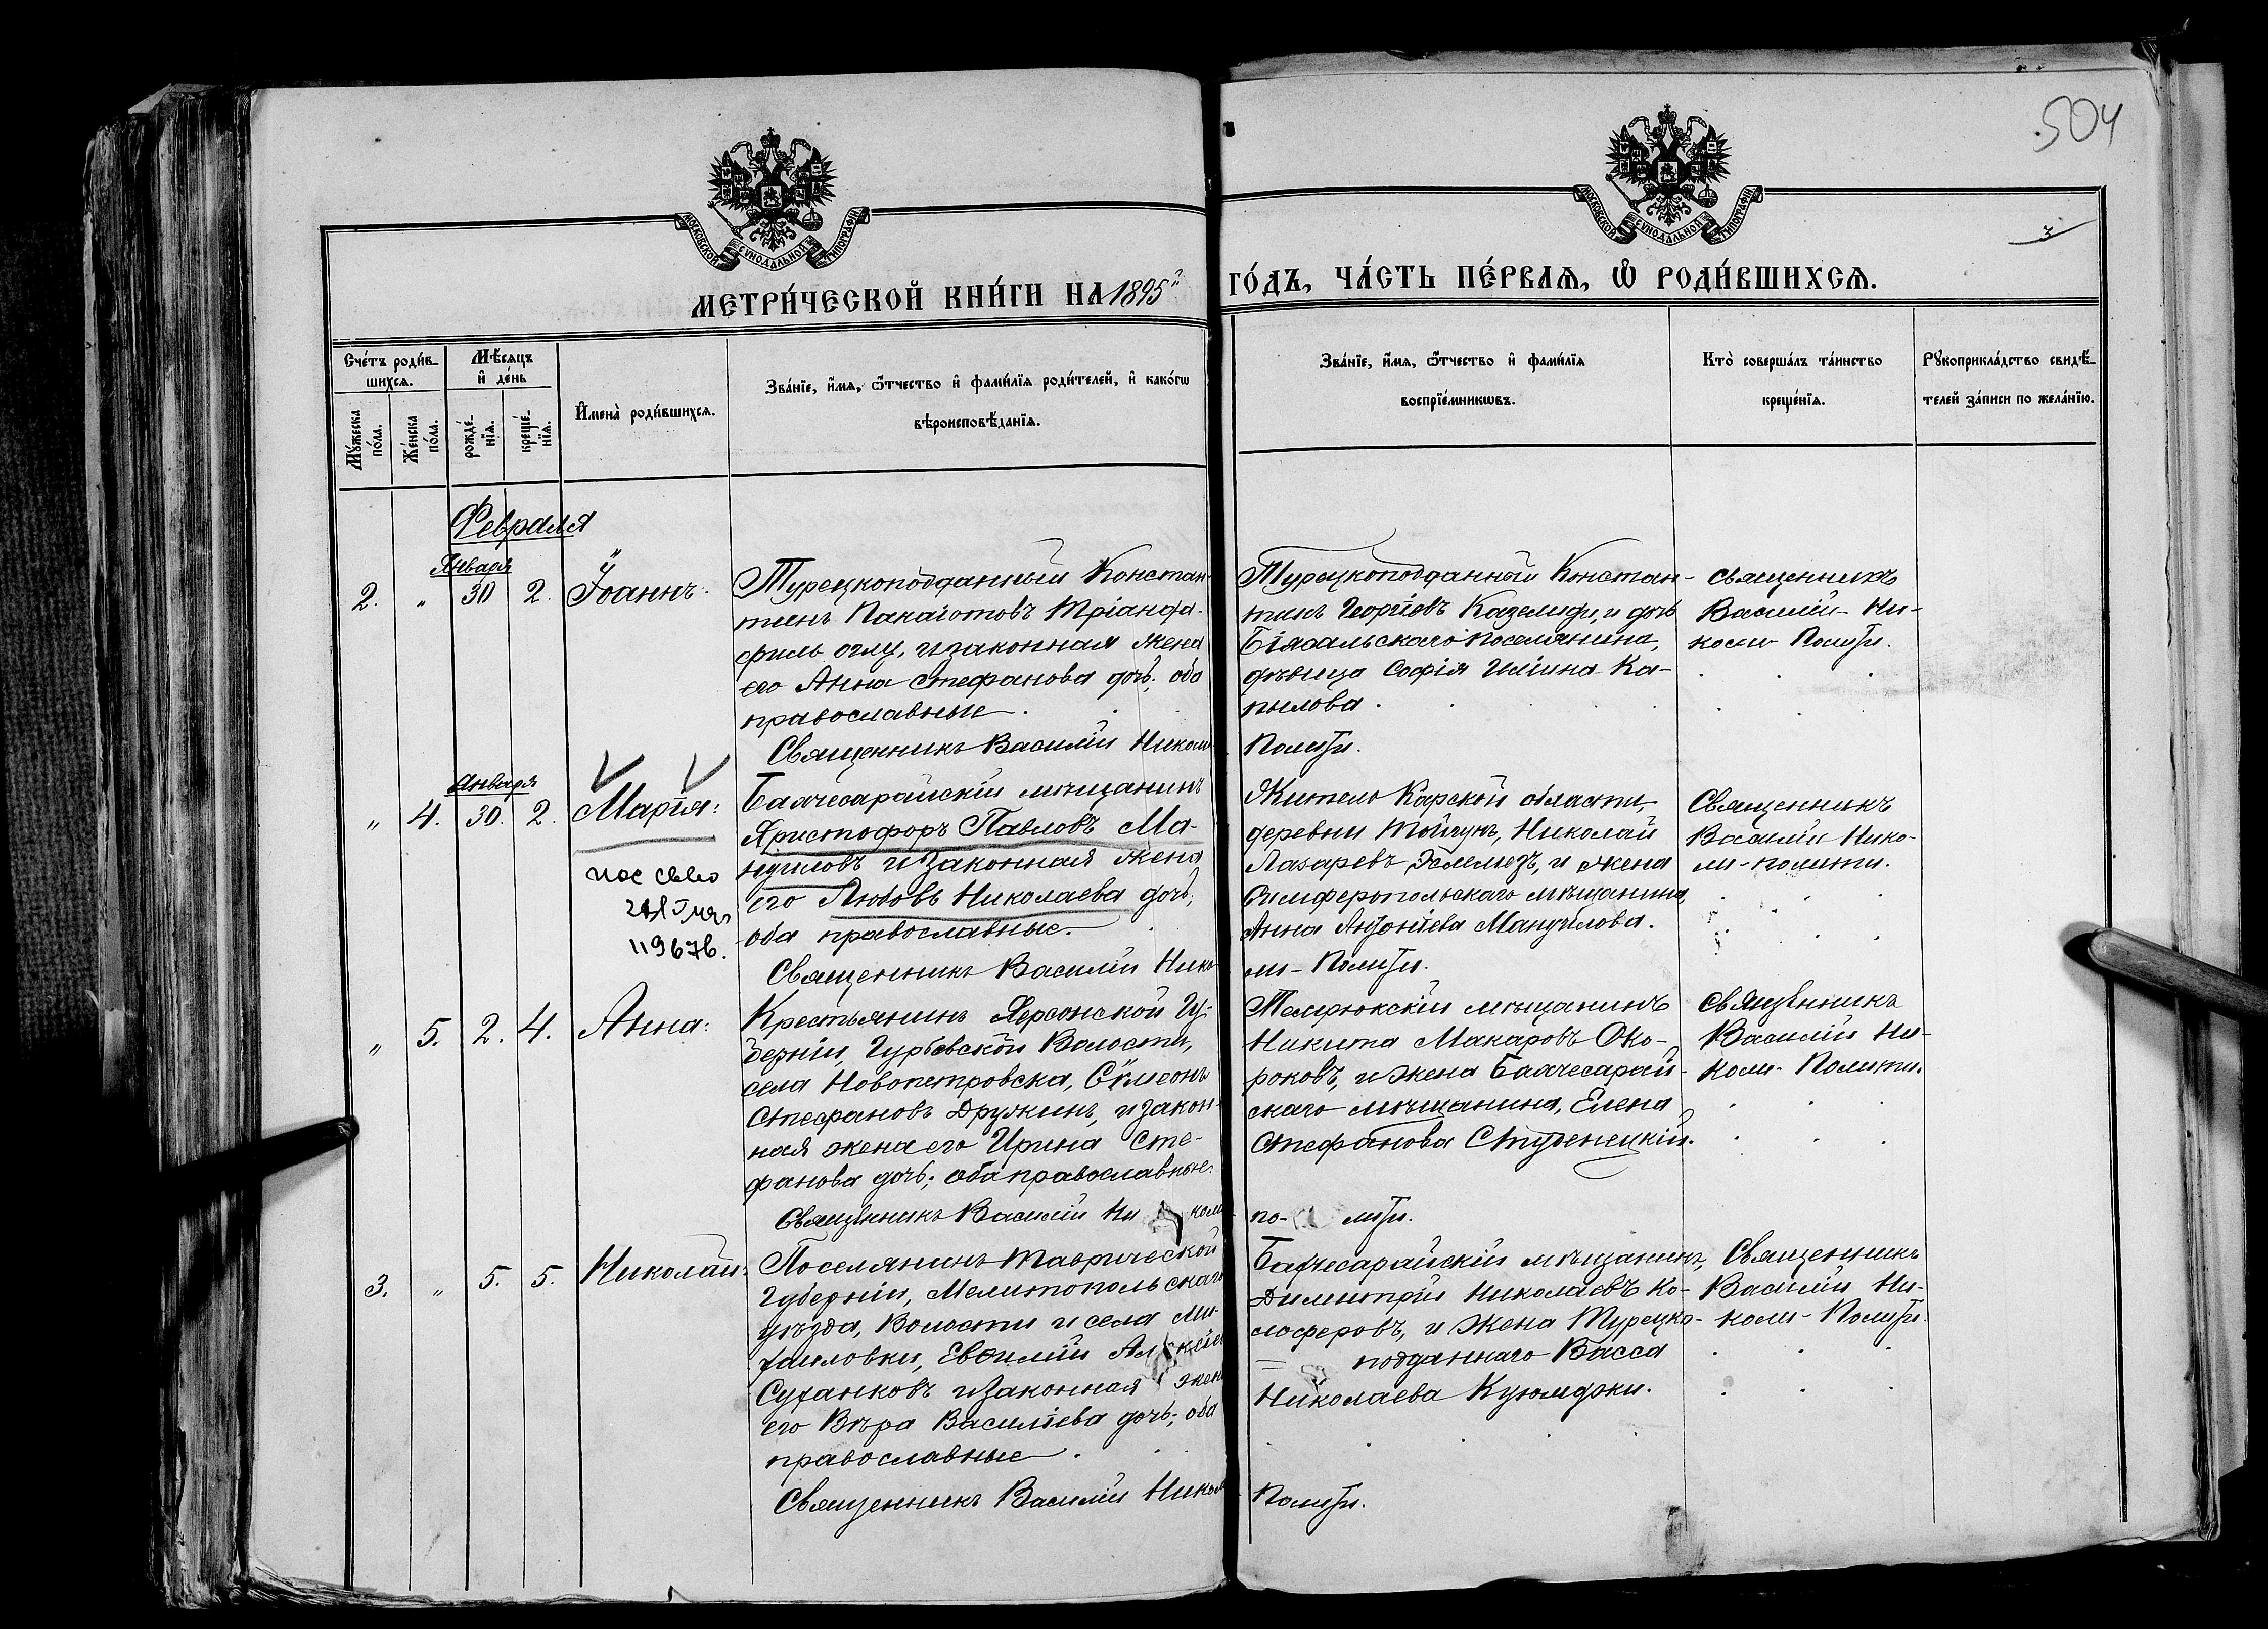 504
3
МОСКОВСКОЙ СУНОДАЛЬНОЙ ТИПОГРАФІИ
МОСКОВСКОЙ СУНОДАЛЬНОЙ ТИПОГРАФІИ
МЕТРИ́ЧЕСКОЙ КНИ́ГИ НА 1895й ГО́ДЪ, ЧА́СТЬ ПЕ́РВАѦ, Ѡ РОДИ́ВШИХСѦ.
Сче́тъ роди́в-
шихся.
Мꙋ́жеска по́ла.
Же́нска по́ла.
Мѣ́сяцъ
и҆ де́нь
рожде́нїѧ.
креще́нїѧ.
И҆мена̀ роди́вшихсѧ.
Зва́нїе, и҆́мѧ, ѻ҆́тчество и҆ фами́лїѧ роди́телей, и҆ како́гѡ
вѣроисповѣ́данїѧ.
Зва́нїе, и҆́мѧ, ѻ҆́тчество и҆ фами́лїѧ
воспрїе́мникѡвъ.
Кто̀ соверша́лъ та́инство
креще́нїѧ.
Рꙋкоприкла́дство свидѣ́-
телей за́писи по жела́нїю.
Февраля
Января
2. " 30 2. Іоаннъ.
Турецкоподданный Констан-
тинъ Панаіотовъ Тріанда-
филь оглу, и законная жена
его Анна Стефанова дочь; оба
православные.
Священникъ Василій Николи-
Турецкоподданный Констан-
тинъ Георгіевъ Каземиди, и дочь
Біясальскаго поселянина,
дѣвица Софія Иліина Ка-
пылова.
Полити.
Священникъ
Василій Ни-
коли-Полити.
Января
" 4. 30. 2. Марія:
Бахчесарайскій мѣщанинъ
Христофоръ Павловъ Ма-
нуиловъ и законная жена
его Любовь Николаева дочь;
оба православные.
Священникъ Василій Нико-
Житель Карской области,
деревни Тойгунъ, Николай
Лазаревъ, и жена
Симферопольскаго мѣщанина,
Анна Антоніева Мануилова.
ли-Полити.
Священникъ
Василій Нико-
ли-Полити.
" 5. 2. 4. Анна:
Крестьянинъ Херсонской Гу-
берніи, Гурьевской Волости,
села Новопетровска, Сѵмеонъ
Стефановъ Дружинъ, и закон-
ная жена его Ирина Сте-
фанова дочь; оба православные.
Священникъ Василій Ни коли-
Темрюкскій мѣщанинъ
Никита Макаровъ Око-
роковъ, и жена Бахчесарай-
скаго мѣщанина, Елена
Стефанова Студенецкій.
По- лити.
Священникъ
Василій Ни-
коли-Полити.
3. " 5. 5. Николай:
Поселянинъ Таврической
Губерніи, Мелитопольскаго
уѣзда, Волости и села Ми-
хаиловки, Евѳимій Алексѣевъ
Суханковъ и законная жена
его Вѣра Василіева дочь; оба
православные.
Священникъ Василій Николи-
Бахчесарайскій мѣщанинъ,
Димитрій Николаевъ Ко-
лосферовъ, и жена Турецко-
подданнаго Васса
Николаева Куюмджи.
Полити.
Священникъ
Василій Ни-
коли-Полити.